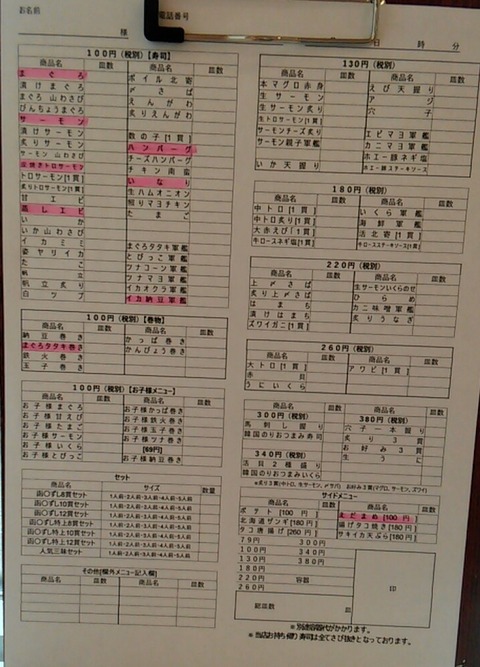 お名前
様
電話番号
日 時 分
100円(税別)【寿司】
商品名 皿数 商品名 皿数
まぐろ ボイル北寄
漬けまぐろ 〆さば
まぐろ山わさび えんがわ
びんちょうまぐろ 炙りえんがわ
サーモン
漬けサーモン 数の子[1貫]
炙りサーモン ハンバーグ
サーモン山わさび チーズハンバーグ
チキン南蛮
トロサーモン[1貫] いなり
炙りトロサーモン[1貫] 生ハムオニオン
甘エビ 照りマヨチキン
蒸しエビ たまご
いか
いか山わさび
イカミミ まぐろタタキ軍艦
姿ヤリイカ とびっこ軍艦
たこ ツナコーン軍艦
帆立 ツナマヨ軍艦
帆立炙り イカオクラ軍艦
白ツブ イカ納豆軍艦
100円(税別)【巻物】
商品名 皿数 商品名 皿数
納豆巻き かっぱ巻き
まぐろタタキ巻き かんぴょう巻き
鉄火巻き
玉子巻き
100円(税別)【お子様メニュー】
商品名 皿数 商品名 皿数
お子様まぐろ お子様かっぱ巻き
お子様甘えび お子様鉄火巻き
お子様たまご お子様玉子巻き
お子様サーモン お子様ツナ巻き
お子様いくら [69円]
お子様とびっこ お子様納豆巻き
セット
商品名 サイズ 数量
函〇ずし8貫セット 1人前・2人前・3人前・4人前・5人前
函〇ずし10貫セット 1人前・2人前・3人前・4人前・5人前
函〇ずし12貫セット 1人前・2人前・3人前・4人前・5人前
函〇ずし特上8貫セット 1人前・2人前・3人前・4人前・5人前
函〇ずし特上10貫セット 1人前・2人前・3人前・4人前・5人前
函〇ずし特上12貫セット 1人前・2人前・3人前・4人前・5人前
人気三昧セット 1人前・2人前・3人前・4人前・5人前
その他[欄外メニュー記入欄]
商品名 皿数 商品名 皿数
130円(税別)
商品名 皿数 商品名 皿数
本マグロ赤身 えび天握り
生サーモン アジ
生サーモン炙り 穴子
生トロサーモン[1貫]
サーモンチーズ炙り エビマヨ軍艦
サーモン親子軍艦 カニマヨ軍艦
ホエー豚ネギ塩
いか天握り ホエー豚ステーキソース
180円(税別)
商品名 皿数 商品名 皿数
中トロ[1貫] いくら軍艦
中トロ炙り[1貫] 海鮮軍艦
大赤えび[1貫] 活北寄[1貫]
牛ロースネギ塩[1貫] 牛ロースステーキソース[1貫]
220円(税別)
商品名 皿数 商品名 皿数
上〆さば 生サーモンいくらのせ
炙り上〆さば ひらめ
はまち カニ味噌軍艦
漬けはまち 炙りうなぎ
ズワイガニ[1貫]
260円(税別)
商品名 皿数 商品名 皿数
大トロ[1貫] アワビ[1貫]
赤貝
うにいくら
300円(税別)
商品名 皿数 商品名 皿数
馬刺し握り 380円(税別)
韓国のりおつまみ寿司 穴子一本握り
炙り3貫
340円(税別) お好み3貫
活貝2種盛り 生うに
韓国のりおつまみいくら
※炙り3貫(中トロ、生サーモン、〆サバ) お好み3貫(マグロ、サーモン、ズワイ)
サイドメニュー
商品名 皿数 商品名 皿数
ポテト [100円] えだまめ [100円]
北海道ザンギ[180円] 揚げタコ焼き[180円]
タコ唐揚げ[260円] サキイカ天ぷら[180円]
79円 300円
100円 340円
130円 380円
180円
220円 容器
260円 印
総皿数 皿
※別途容器代がかかります。
※当店お持ち帰り寿司は全てさび抜きとなっております。